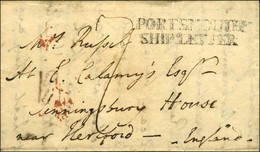 PORTSMOUTH
SHIP LETTER
Mrs Russell
At E. Calamy's Esqre
Jenningsbury House
near Hertford —
England